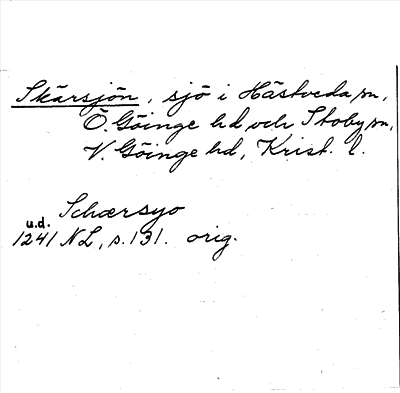 Skärsjön, sjö i Hästveda sn,
Ö. Göinge hd och Stoby sn,
V. Göinge hd, Krist. l.
Schærsyo
u.d.
1241 NL, s. 131. orig.